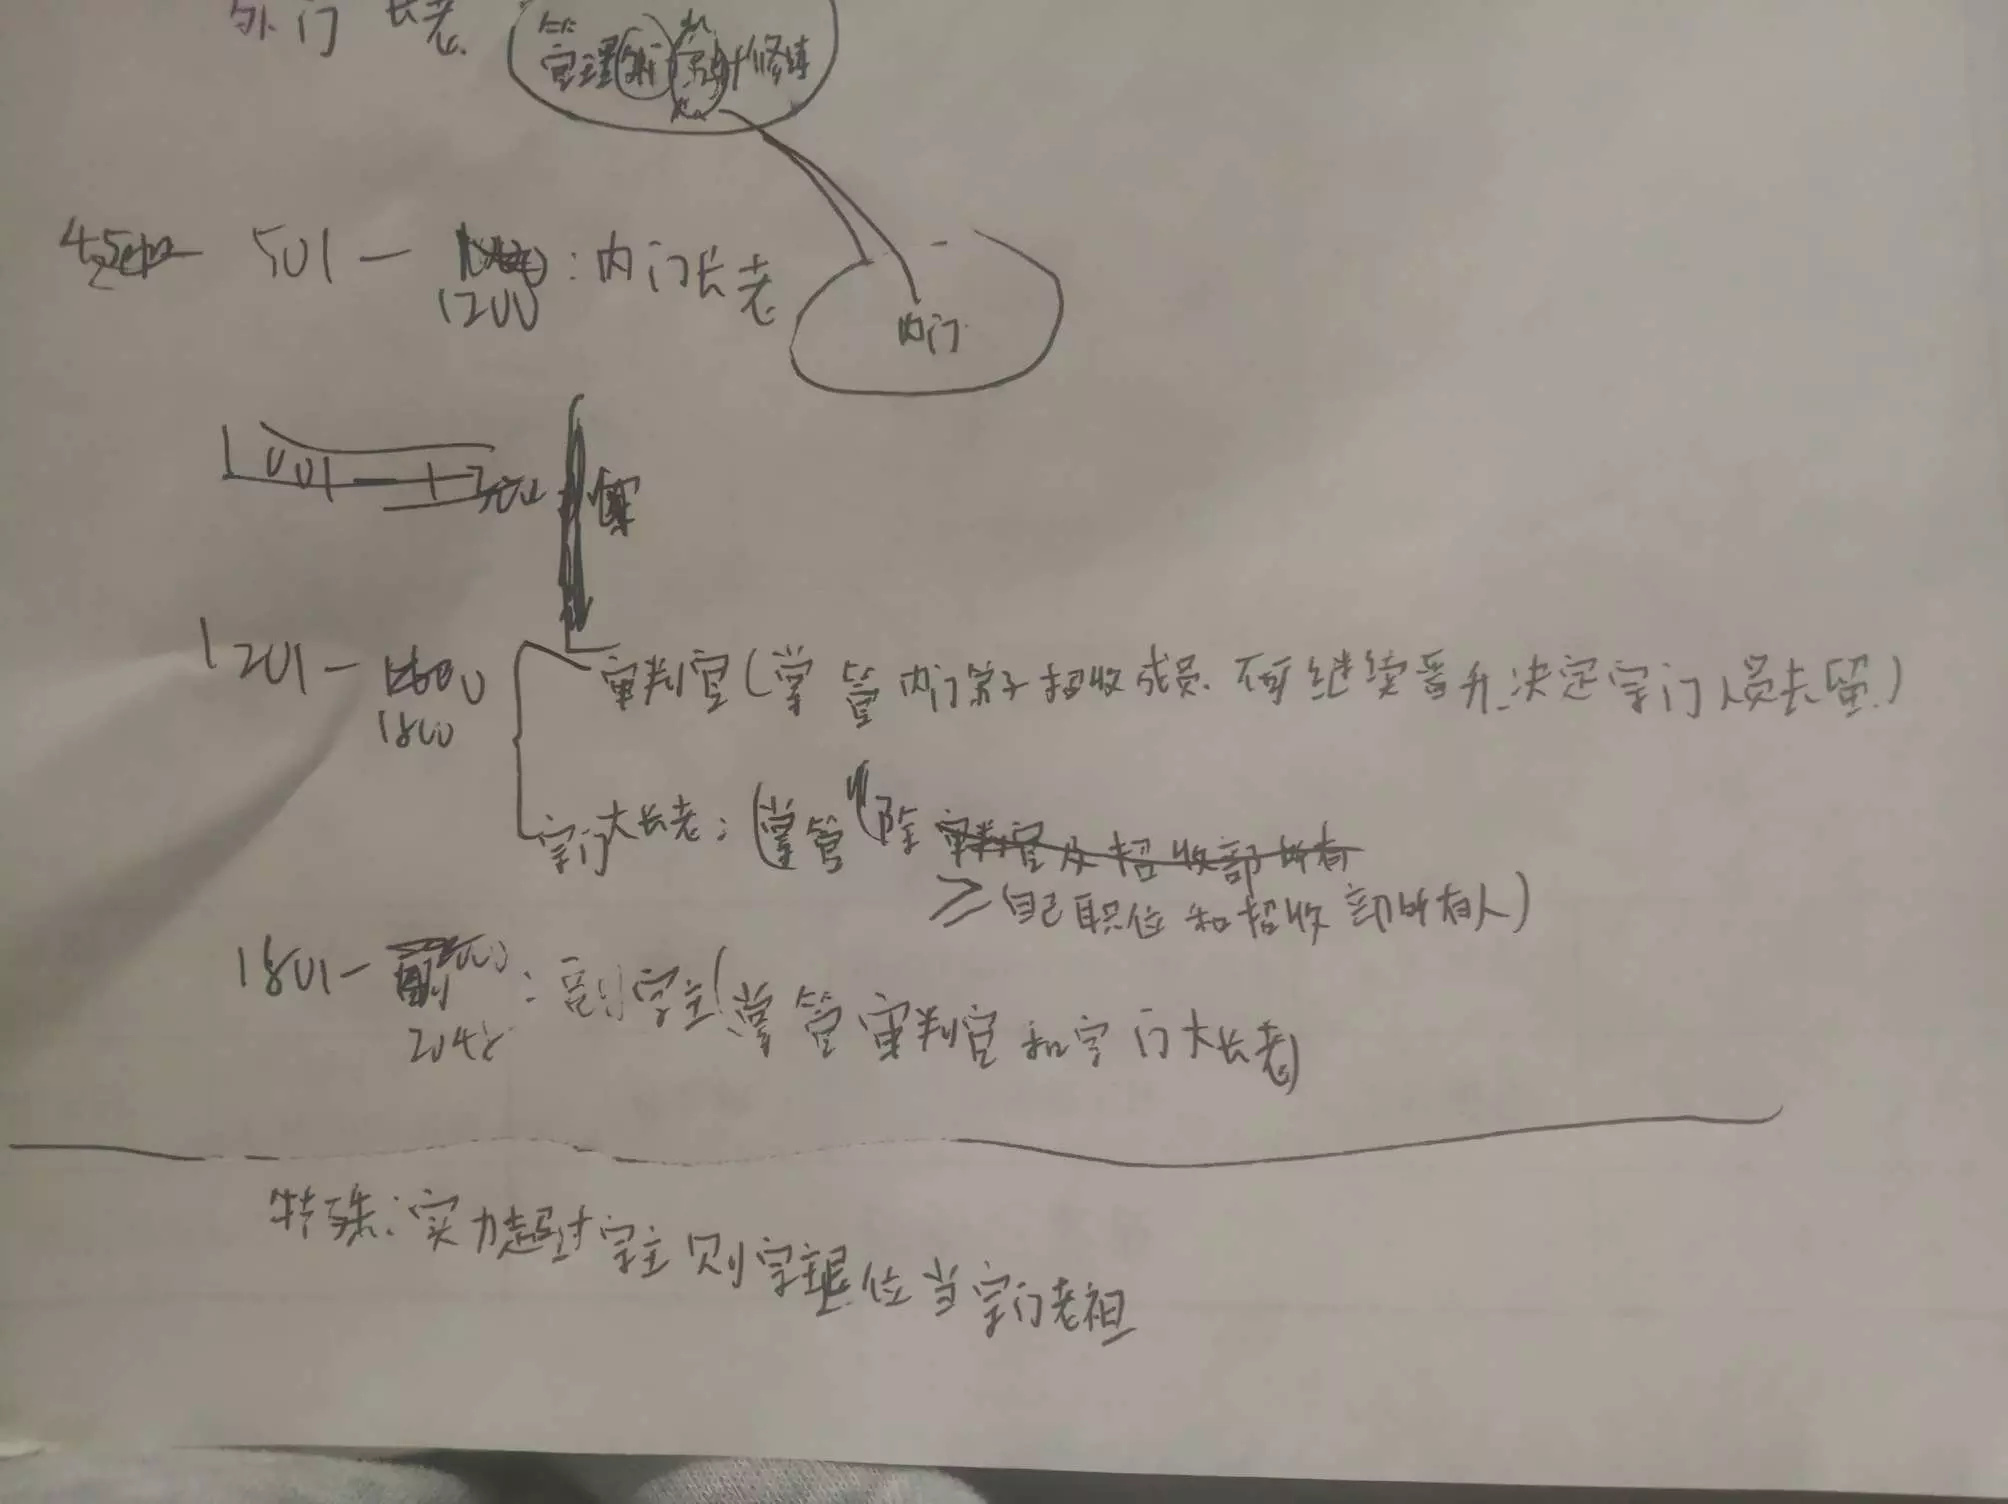 外门长老
管理 修炼
501一1200:内门长老
内门
1001一
1201一1800
审判官(掌管内门弟子招收成员.不可继续晋升.决定宗门人员去留)
宗门大长老:(掌管(除审判官及招收部所有
≥自己职位和招收部所有人)
1801一2048:副宗主(掌管审判官和宗门大长老)
特殊:实力超过宗主则宗主退位当宗门老祖